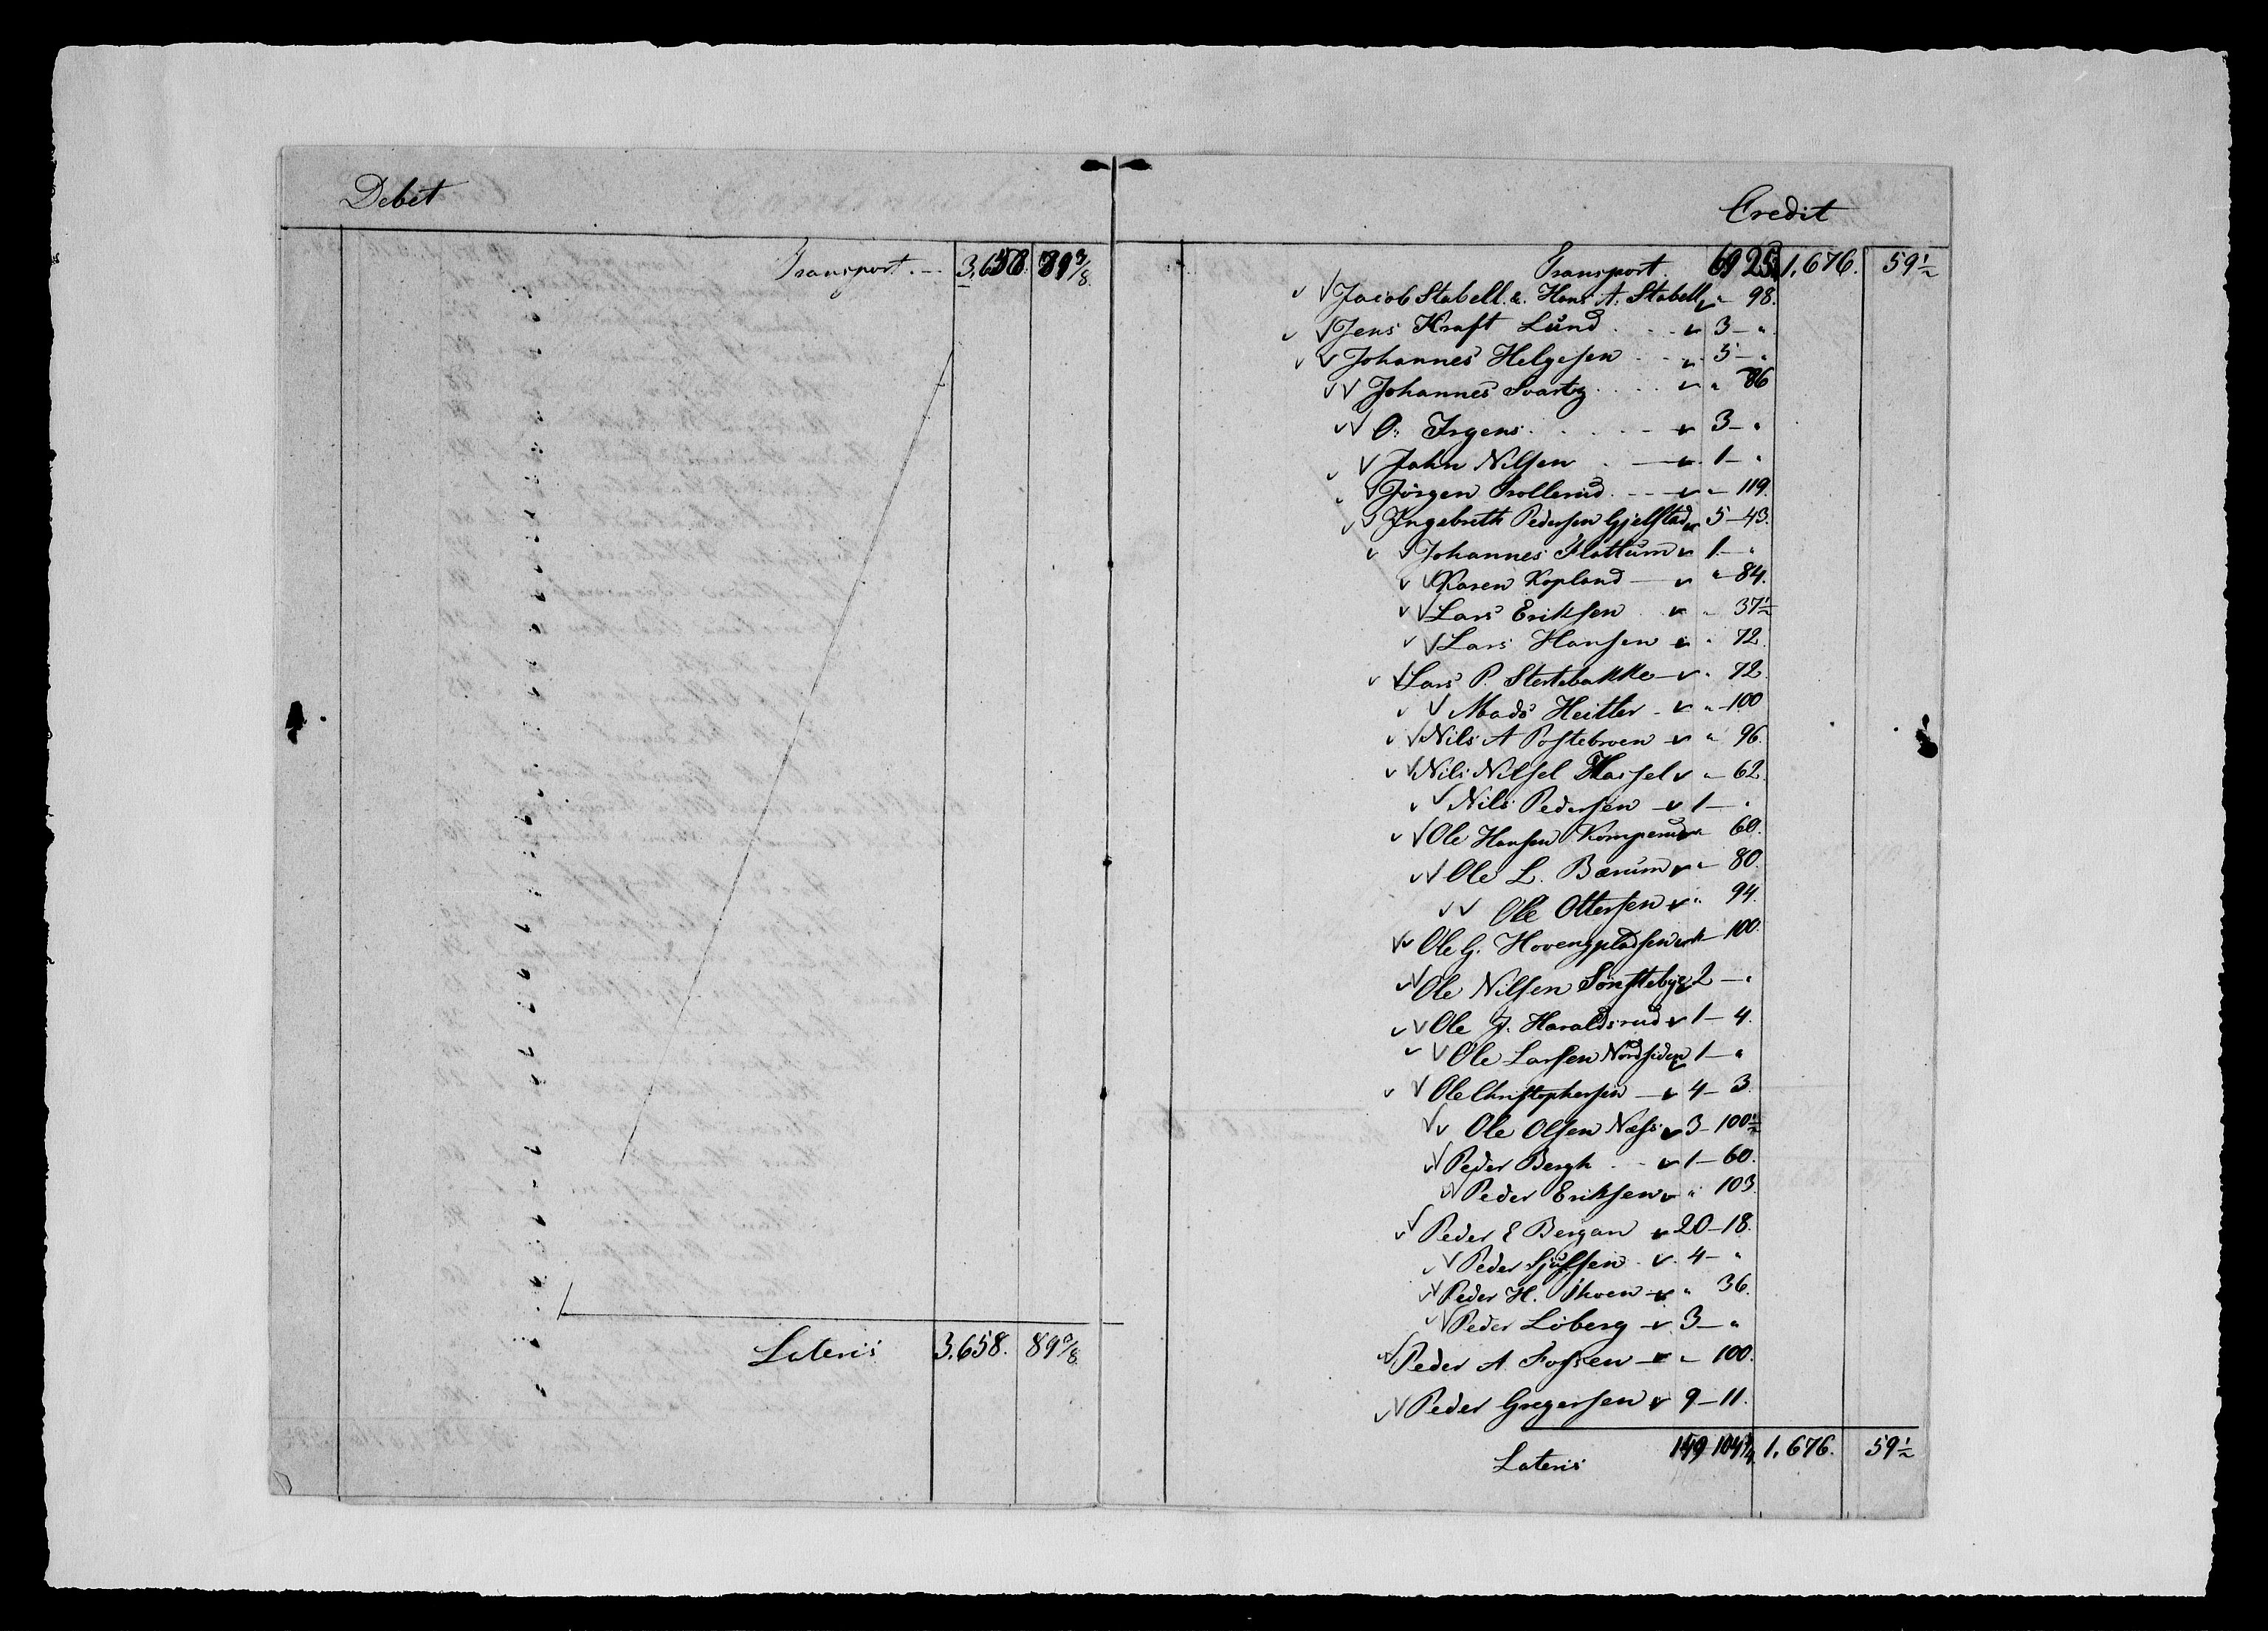 Debet
Transport. -- 3,658. 89 3/8.
Lateris 3,658. 89 3/8.
Credit
Transport. 69 25 1,676. 59 1/2
Jacob Stabell. & Hans A. Stabell " - 98.
Jens Kraft Lund . . . 3 - "
Johannes Helgesen . . . 5 - "
Johannes Svartz . . . . " 86
O. Irgens . . . . . 3 - "
John Nilsen . — 1 - "
Jörgen Trollerud . - - — " - 119.
Ingebreth Pedersen Gjelstad 5 - 43.
Johannes Flattum 1 - "
Karen Kopland — " - 84.
Lars Eriksen . . " 37 1/2
Lars Hansen " 72.
Lars P. Stertebakke — " 72.
Mads Heitler - " - 100
Nils A Postebroen " 96.
Nils Nilsel Hassel " - 62.
Nils Pedersen — 1 - "
Ole Hansen Komperud " 60.
Ole L. Bærum " - 80.
Ole Ottersen " 94.
Ole G. Hovengpladsen " - 100.
Ole Nilsen Sönstebye 2 - "
Ole J. Haraldsrud 1 - 4.
Ole Larsen Nordsiden 1 - "
Ole Christophersen — 4 - 3.
Ole Olsen Næss 3 - 100 1/2
Peder Bergh . - 1 - 60.
Peder Eriksen " 103.
Peder E Bergan 20 - 18.
Peder . 4 - "
Peder H. " 36.
Peder Loberg - 3 - "
Peder A. Fossen — " - 100.
Peder Gregersen 9 - 11.
Lateris 149 104 3/4 1,676. 59 1/2